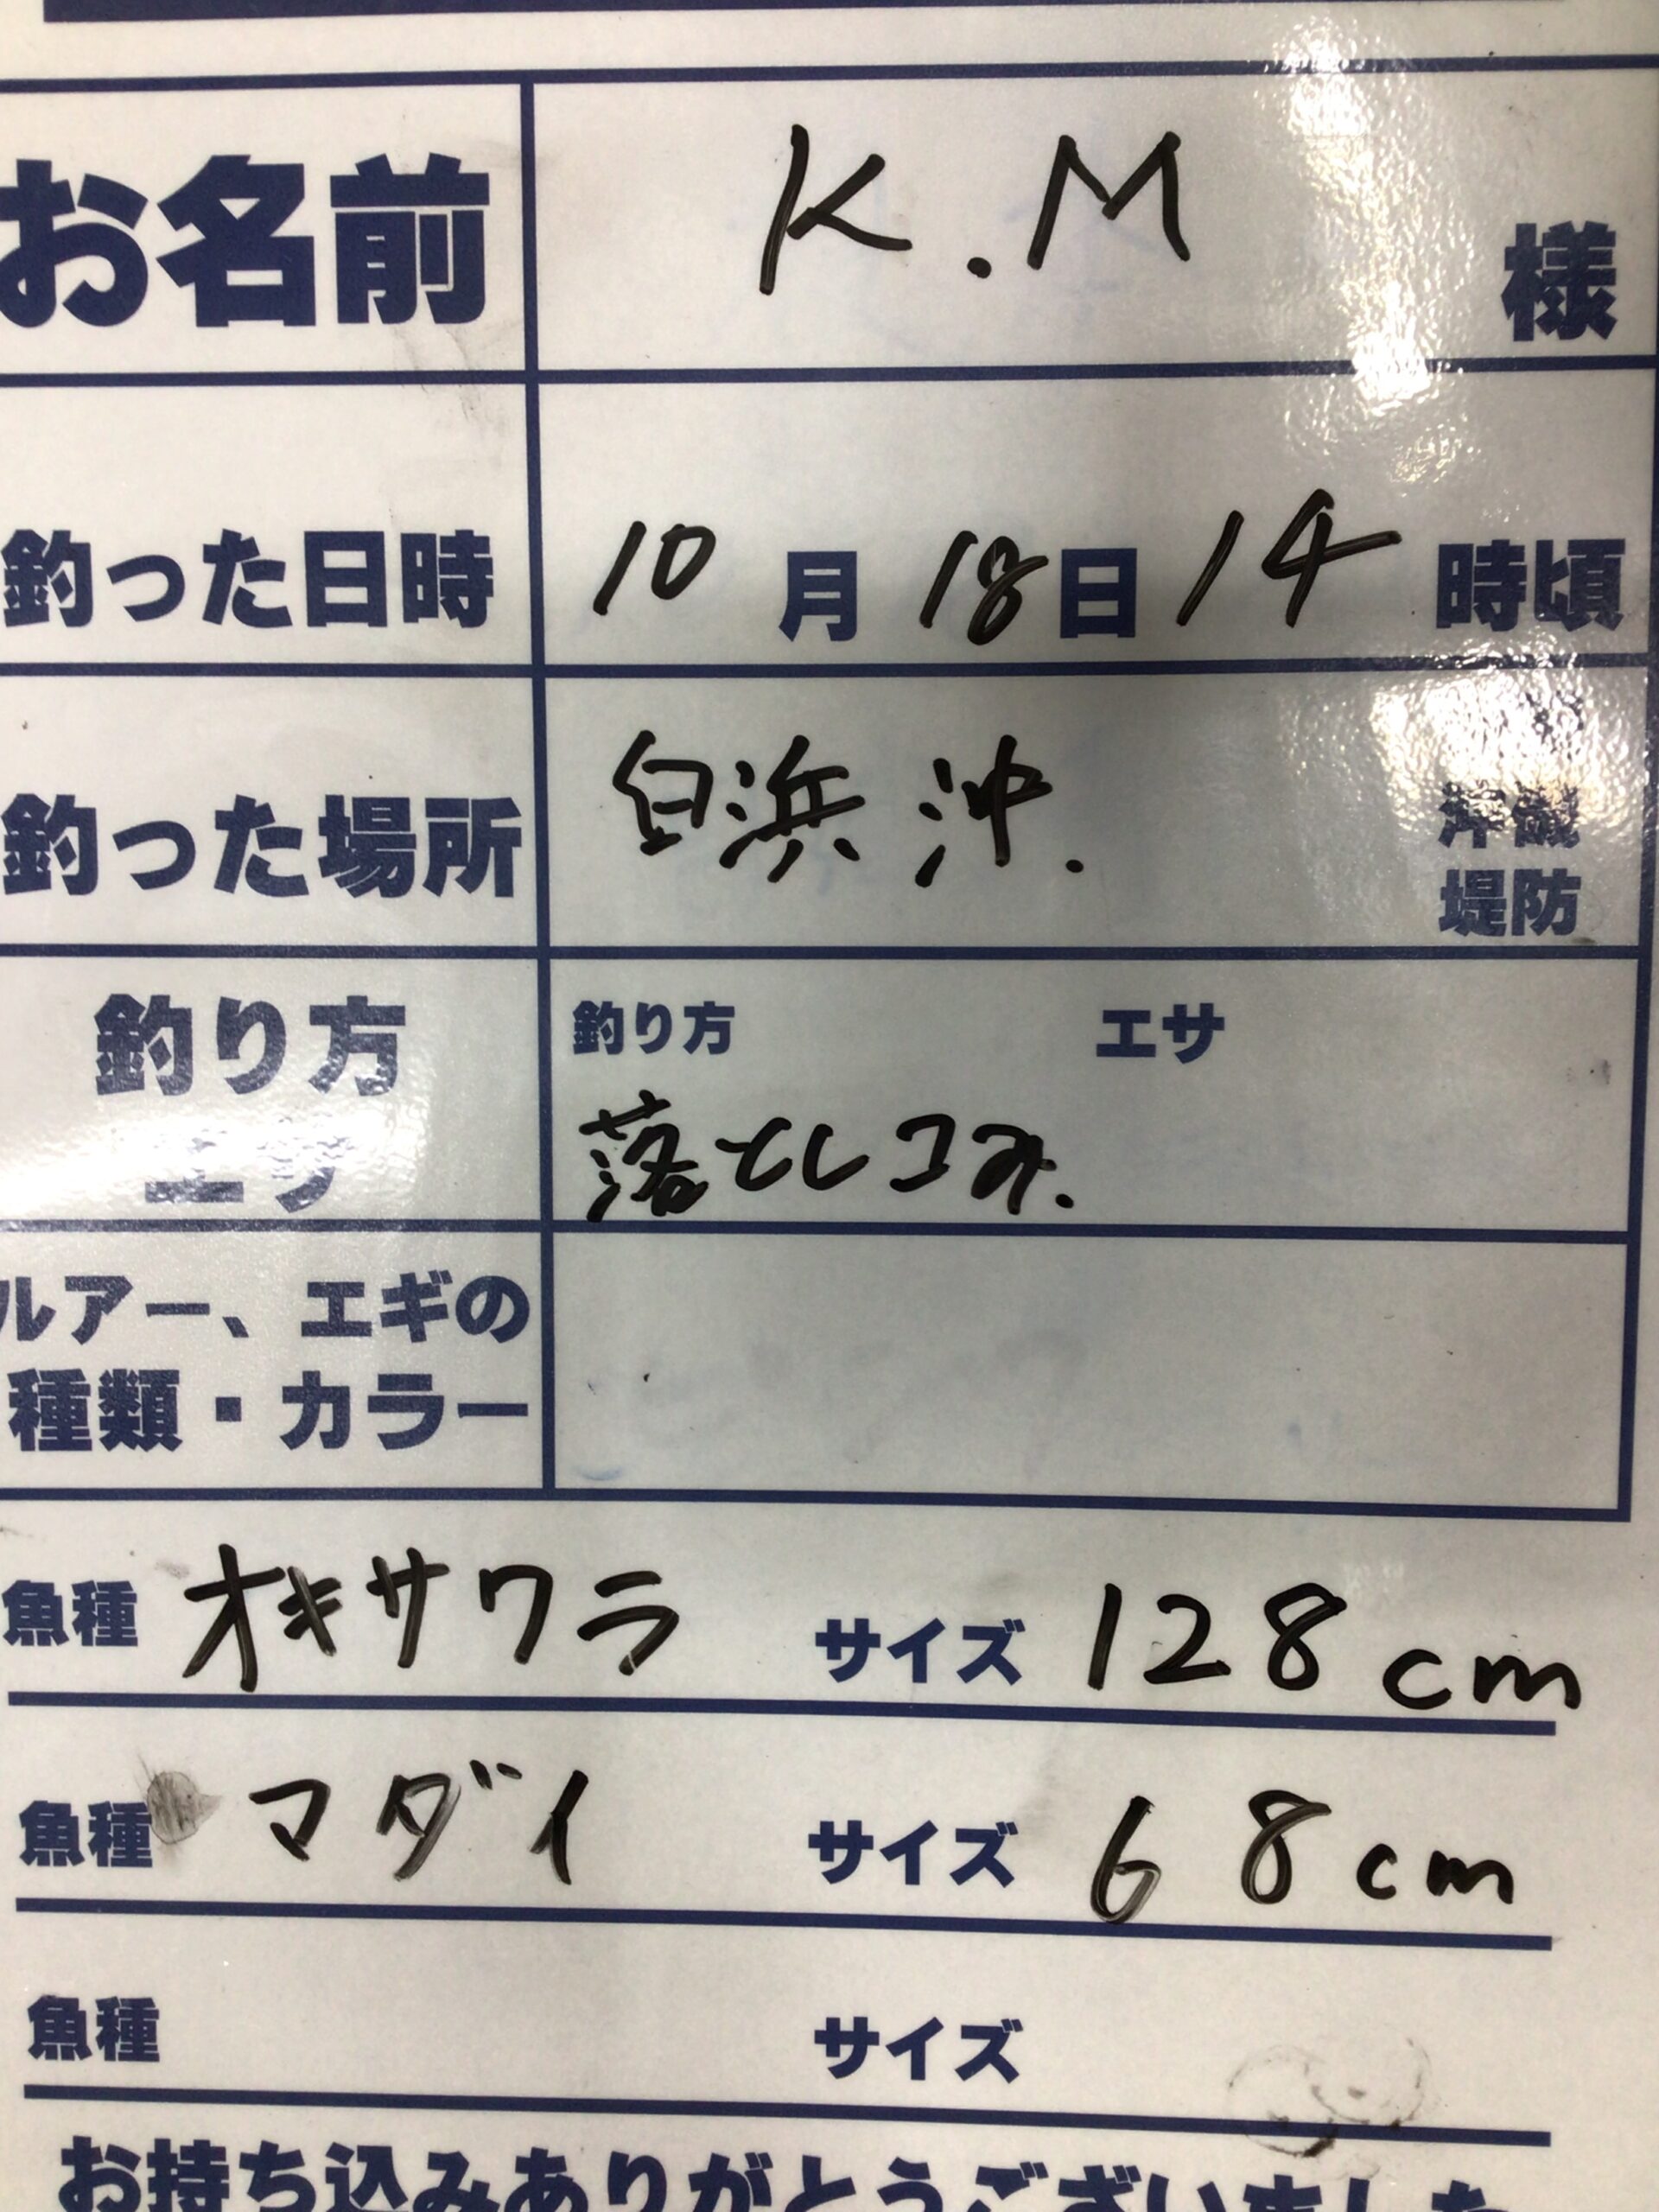 お名前 K.M 様
釣った日時 10月18日14時頃
釣った場所 白浜 沖. 沖磯
堤防
釣り方 釣り方 エサ
エサ 落としコみ.
ルアー、エギの
種類・カラー
魚種 オキサワラ サイズ 128cm
魚種 マダイ サイズ 68cm
魚種 サイズ
お持ち込みありがとうございました